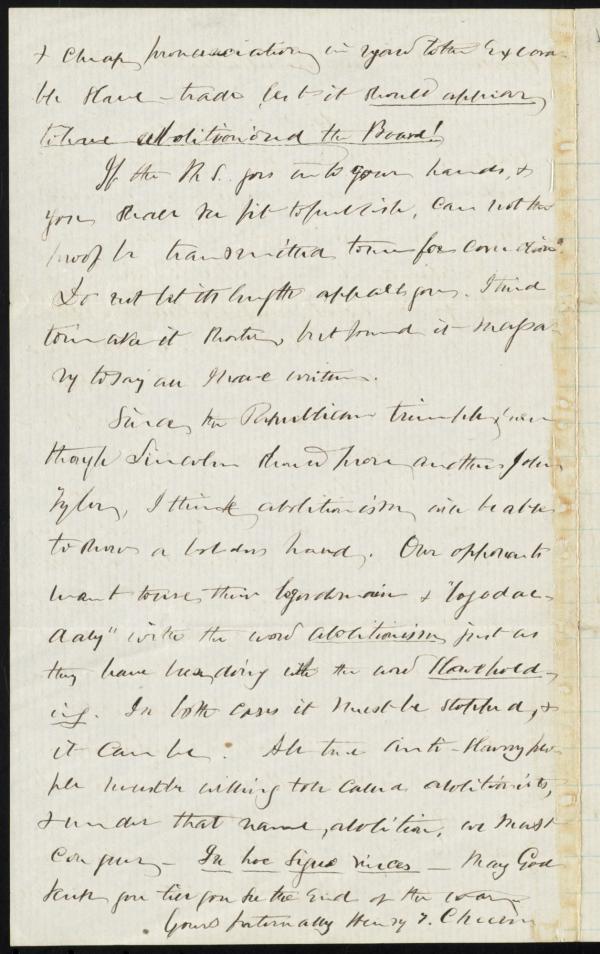 & cheap pronunciation in regard to the execra-
ble slave-trade, lest it should appear
to have abolitionized the Board!
If the MS. goes into your hands, &
you shall see fit to publish, can not the
proof be transmitted to me for correction?
Do not let its length appall you. I tried
to make it shorter, but found it necessa-
ry to say all I have written.
Since the Republican triumph, even
though Lincoln should prove another John
Tyler, I think abolitionism will be able
to show a bolder hand. Our opponents
want to use their legerdemain & "logodae-
daly" with the word abolitionism just as
they have been doing with the word slavehold-
ing. In both cases it must be stopped, &
it can be. All true anti-slavery peo-
ple must be willing to be called abolitionists,
& under that name, abolition, we must
conquer - In hoc signo vinces - May God
keep you till you see the end of the war
Yours fraternally Henry T. Cheever